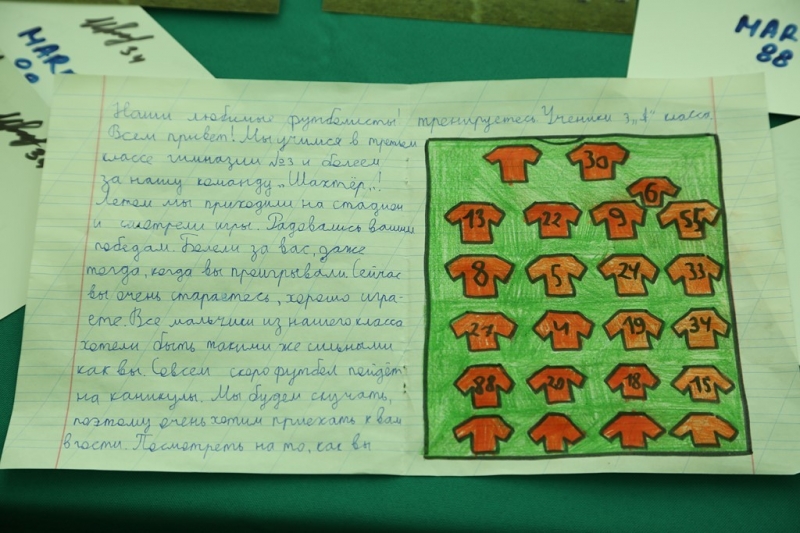 Наши любимые футболисты!
Всем привет! Мы учимся в третьем
классе гимназии №3 и болеем
за нашу команду „Шахтёр„!
Летом мы приходили на стадион
и смотрели игры. Радовались вашим
победам. Болели за вас, даже
тогда, когда вы проигрывали. Сейчас
вы очень стараетесь, хорошо игра-
ете. Все мальчики из нашего класса
хотели быть такими же сильными
как вы. Совсем скоро футбол пойдёт
на каникулы. Мы будем скучать,
поэтому очень хотим приехать к вам
в гости. Посмотреть на то, как вы
тренируетесь. Ученики 3 „А" класса.
30
6
13 22 9 55
8 5 24 33
21 4 19 34
88 20 18 15
34
MAR
88